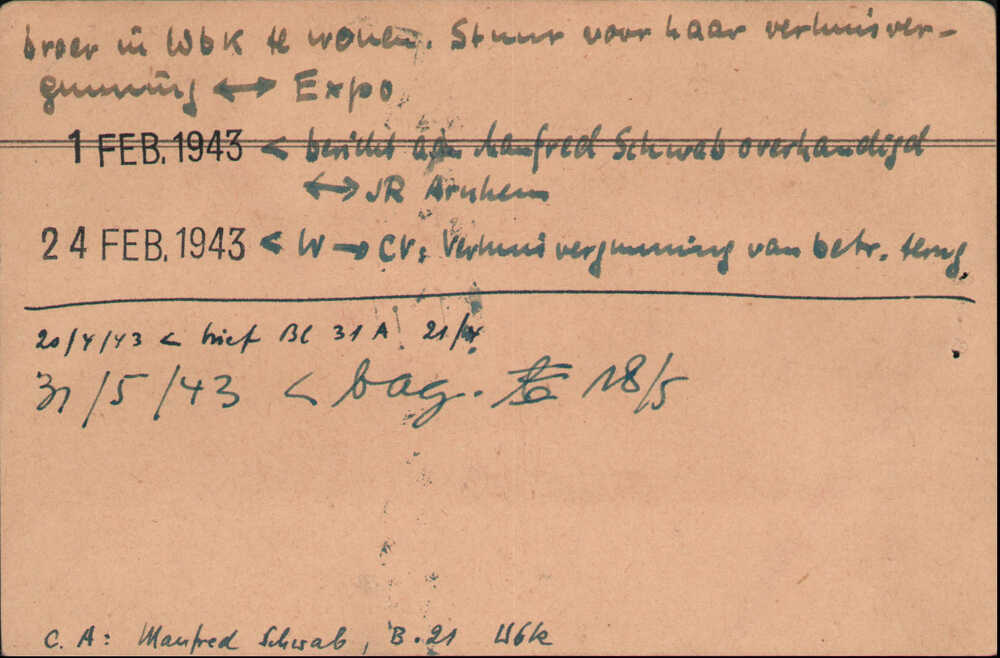 broer in Wbk te wonen. Stuur voor haar verhuisver-
gunning ↔ Expo
1 FEB. 1943 < bericht aan Manfred Schwab overhandigd
↔ JR Arnhem
24 FEB. 1943 < W → CV: Verhuisvergunning van betr. terug
20/4/43 < brief BC 31 A 21/4
31/5/43 < bag. 18/5
C. A: Manfred Schwab, B. 21 Wbk